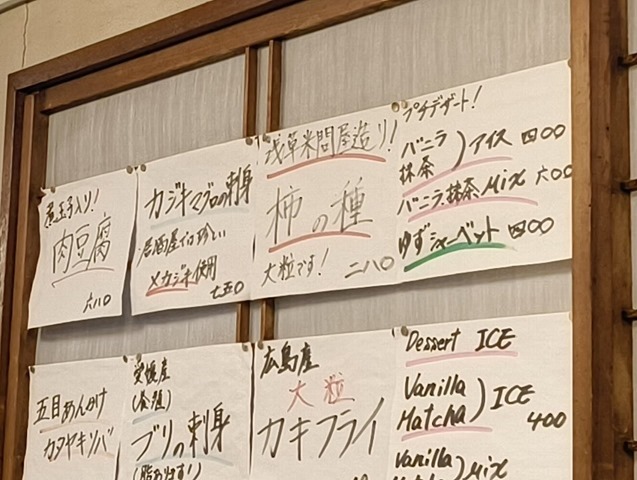 煮玉子入り!
肉豆腐
六八〇
カジキマグロの刺身
居酒屋では珍しい
メカジキ使用
七五〇
浅草米問屋造り!
柿の種
大粒です! 二八〇
プチデザート!
バニラ
抹茶
アイス 四〇〇
バニラ、抹茶Mix 六〇〇
ゆずシャーベット 四〇〇
五目あんかけ
カタヤキソバ
愛媛産
(養殖)
ブリの刺身
広島産
大粒
カキフライ
Dessert ICE
Vanilla
Matcha
ICE
400
Vanilla
Mix